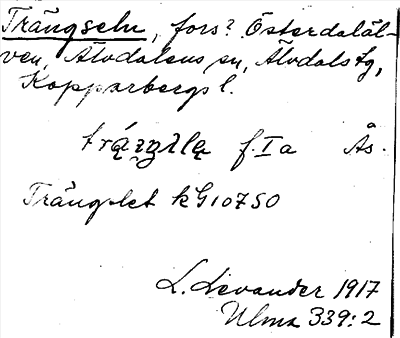 Trängseln, fors? Österdaläl-
ven, Älvdalens sn, Älvdals tg,
Kopparbergs l.
f. Ia Ås.
Tränglet kG10750
L. Levander 1917
Ulma 339:2